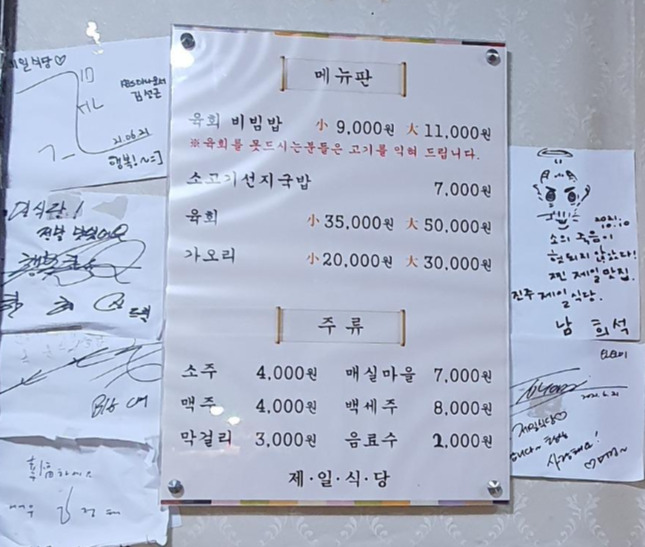 메뉴판
육회 비빔밥 小 9,000원 大 11,000원
※육회를 못드시는분들은 고기를 익혀 드립니다.
소고기선지국밥 7,000원
육회 小 35,000원 大 50,000원
가오리 小 20,000원 大 30,000원
주류
소주 4,000원 매실마을 7,000원
맥주 4,000원 백세주 8,000원
막걸리 3,000원 음료수 2,000원
제·일·식·당
일식당♡
김성근
21.06.21
행복!
소의 죽음이
헛되지 않았다!
찐 제일맛집.
진주제일식당.
남 희석
2021.6.21
제일식당♡